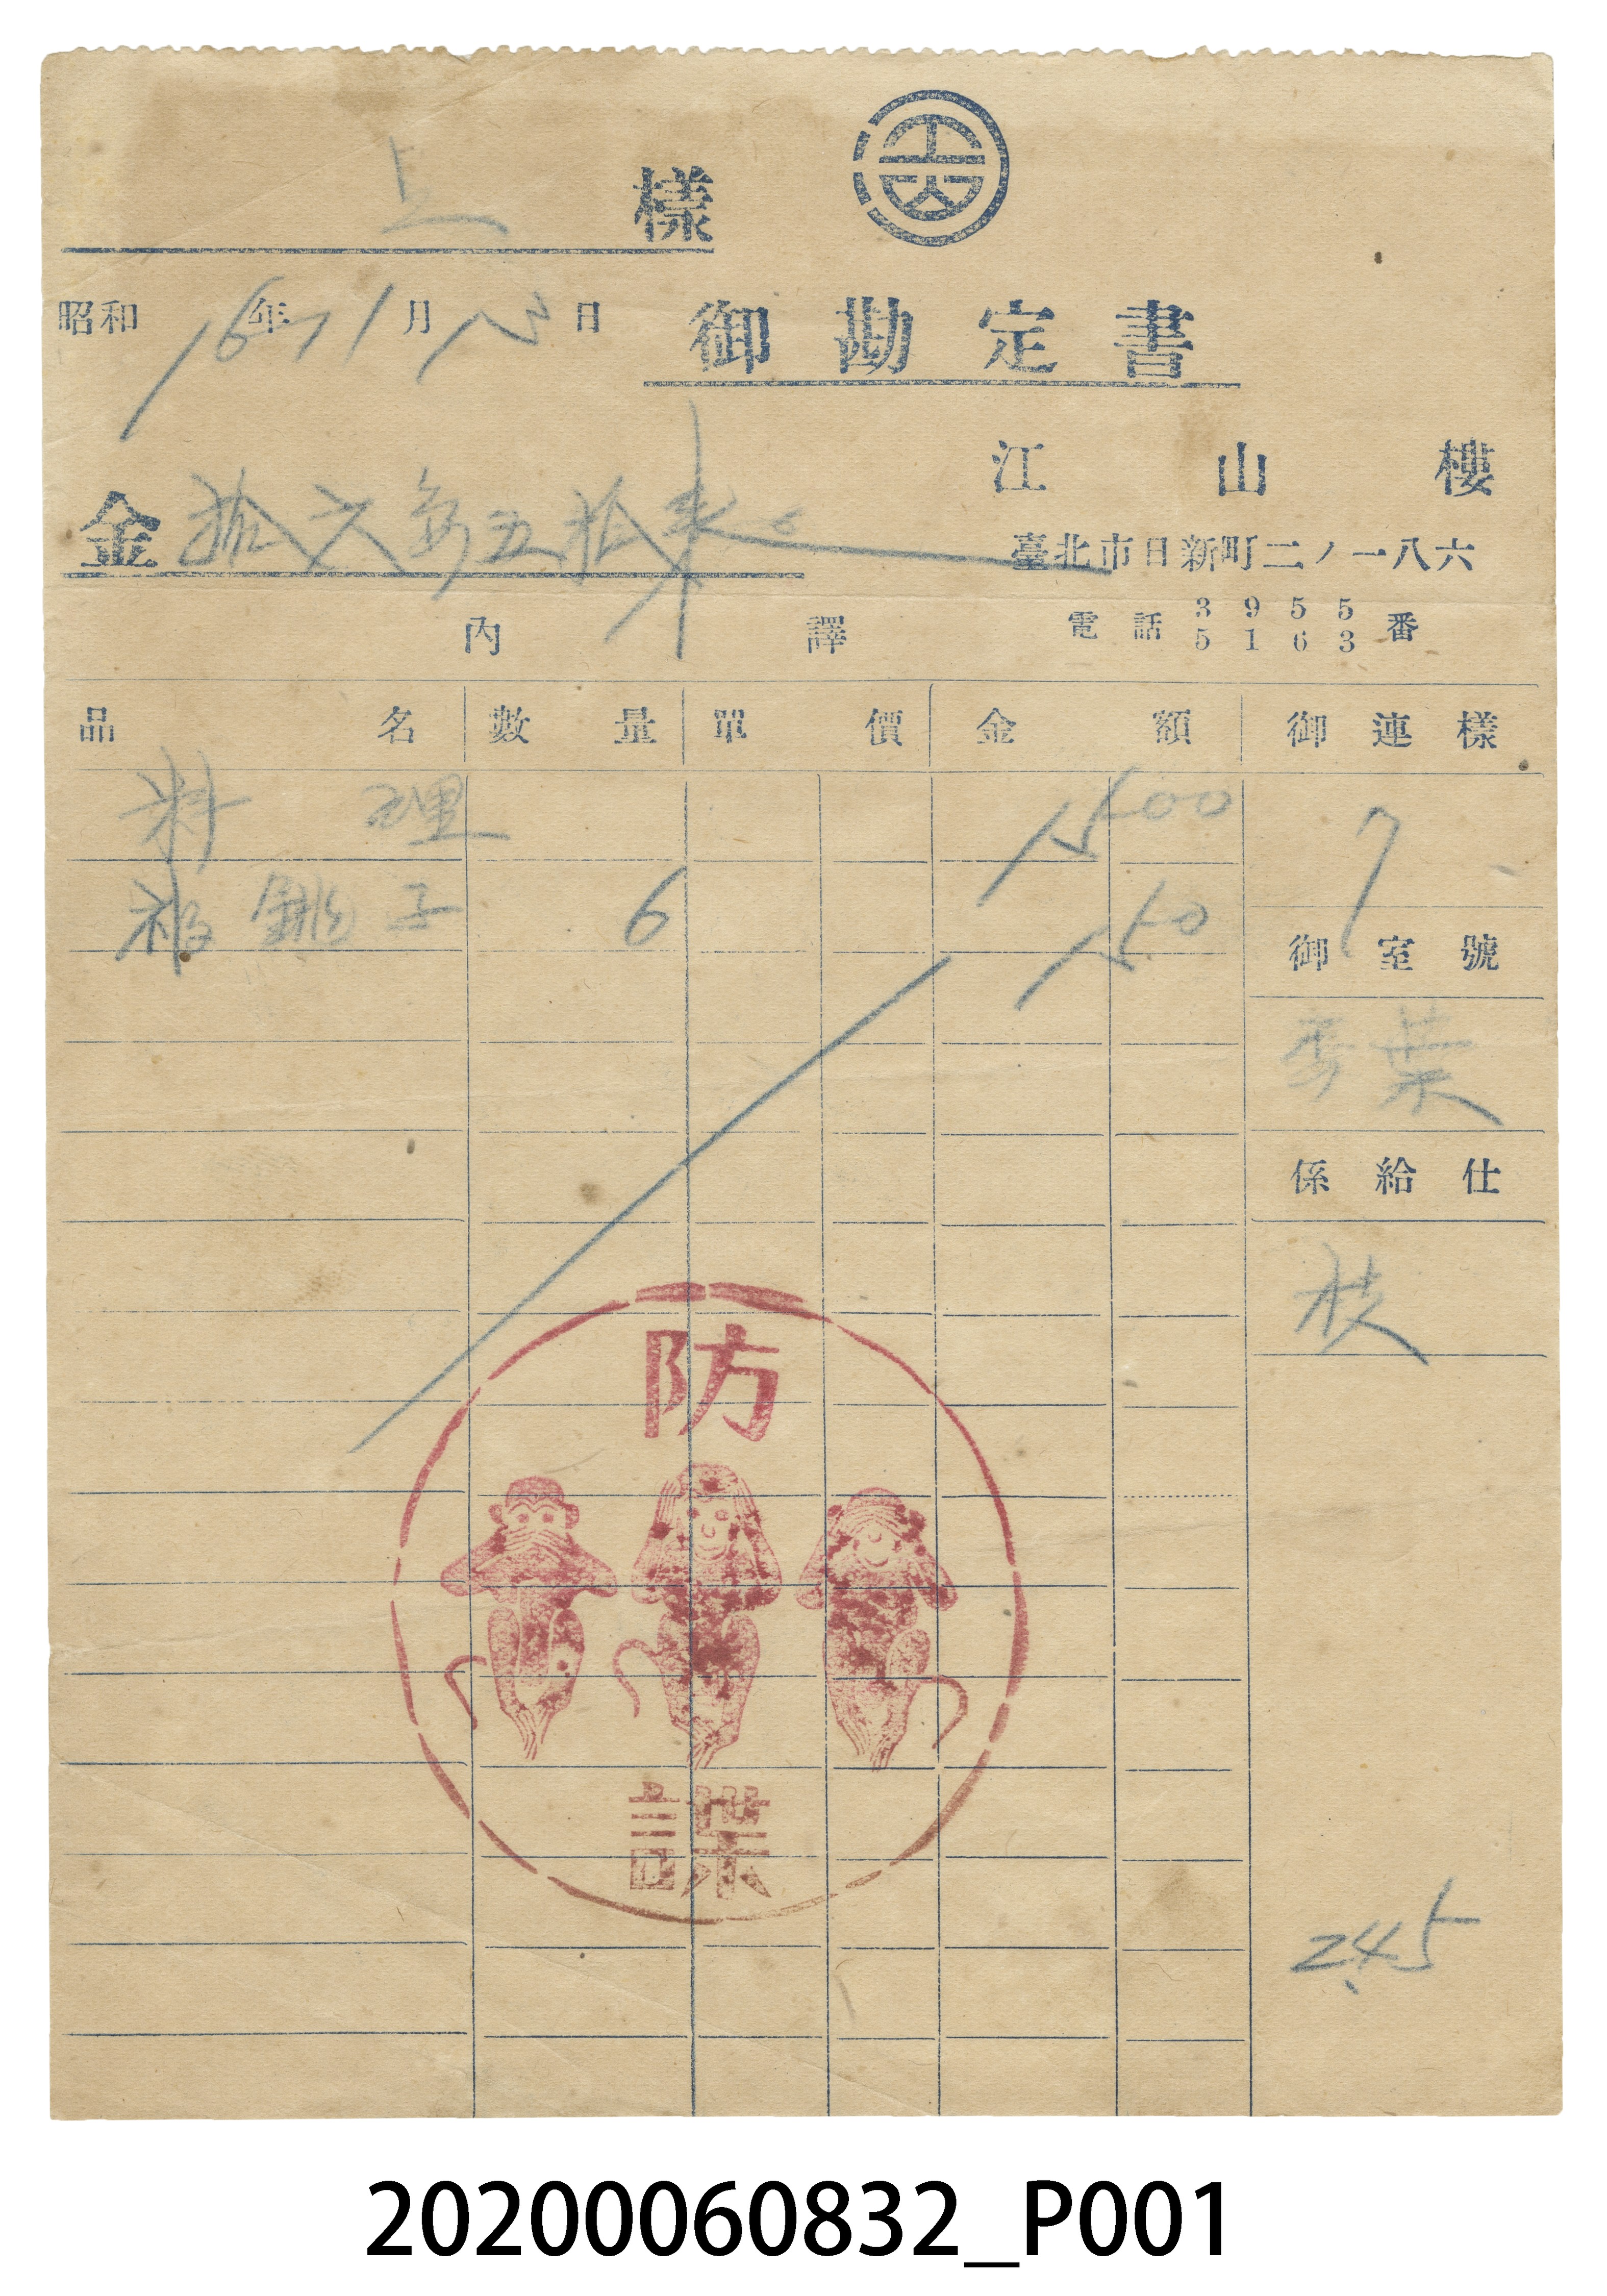 上 樣
昭和 16年 11月 13日
御勘定書
江山樓
金 拾六円五拾錢
臺北市日新町二ノ一八六
電話 3955 5163 番
內譯
品名 數量 單價 金額 御連樣
料理 1500 7
銚子 6 150
御室號
葉
係給仕
枝
防
諜
245
20200060832_P001